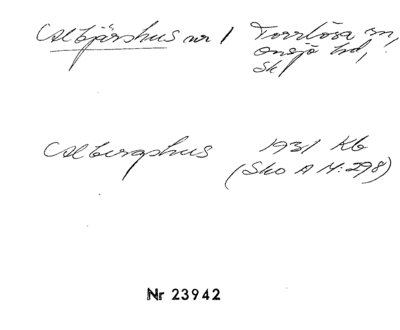 Albjärshus nr 1 Torrlösa sn,
Onsjö hd,
Sk
Alberaphus 1931 Kb
(Sko A M:298)
Nr 23942